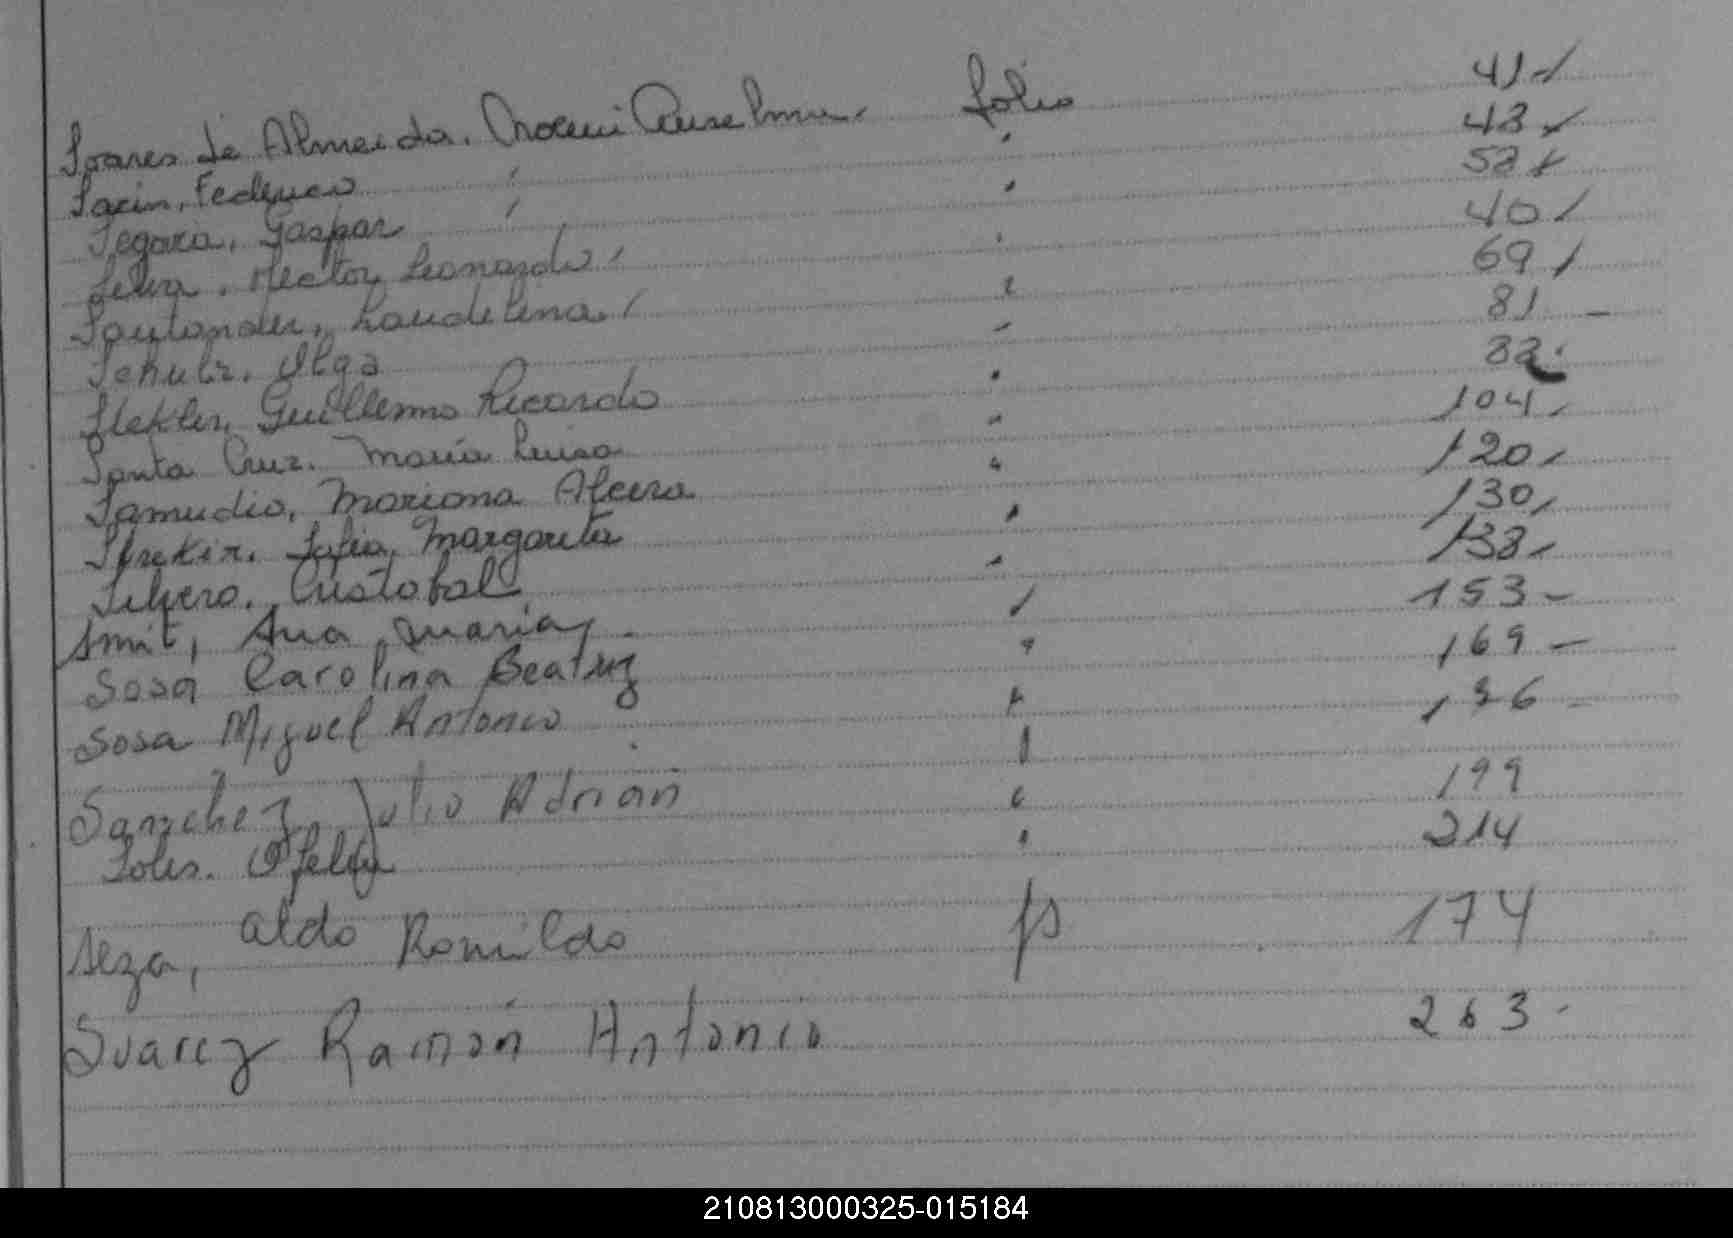 Soares de Almeida, Noemi Anselma folio 41
Sarin, Federico " 43
Segara, Gaspar " 52
Selva, Hector Leonardo " 40
Santander, Laudelina " 69
Schulz, Olga " 81
Stekler, Guillermo Ricardo " 82
Santa Cruz, Maria Luisa " 104
Samudio, Mariana Alcira " 120
Margarita " 130
Silvero, Cristobal " 138
Smit, Ana Maria " 153
Sosa Carolina Beatriz " 169
Sosa Miguel Antonio "
Sanchez, Julio Adrián " 199
Solis, Ofelia " 214
Seza, Aldo Romildo fs 174
Suarez Ramón Antonio 263
210813000325-015184